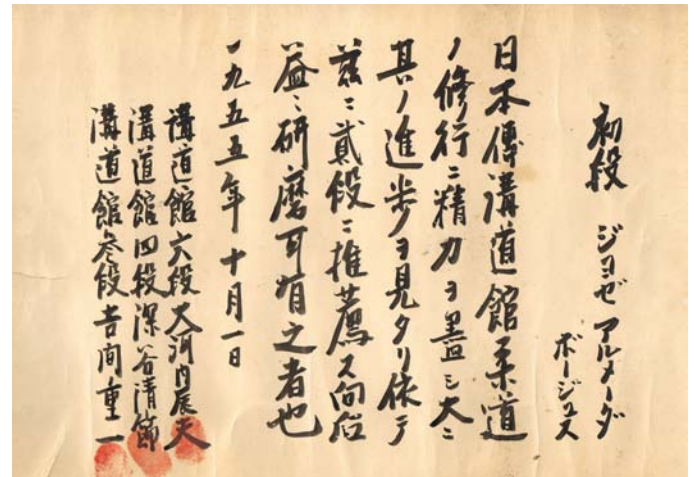 初段 ジヨゼ アルメーダ
ボージエス
日本傳溝道館柔道
ノ修行ニ精力ヲ盡シ大ニ
其ノ進歩ヲ見タリ依テ
茲ニ貳段ニ推薦ス向後
益々研磨可有之者也
一九五五年十月一日
溝道館六段大河内辰夫
溝道館四段深谷清節
溝道館参段吉間重一